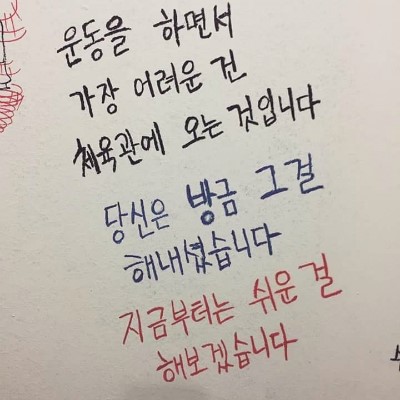 운동을 하면서
가장 어려운 건
체육관에 오는 것입니다
당신은 방금 그걸
해내셨습니다
지금부터는 쉬운 걸
해보겠습니다